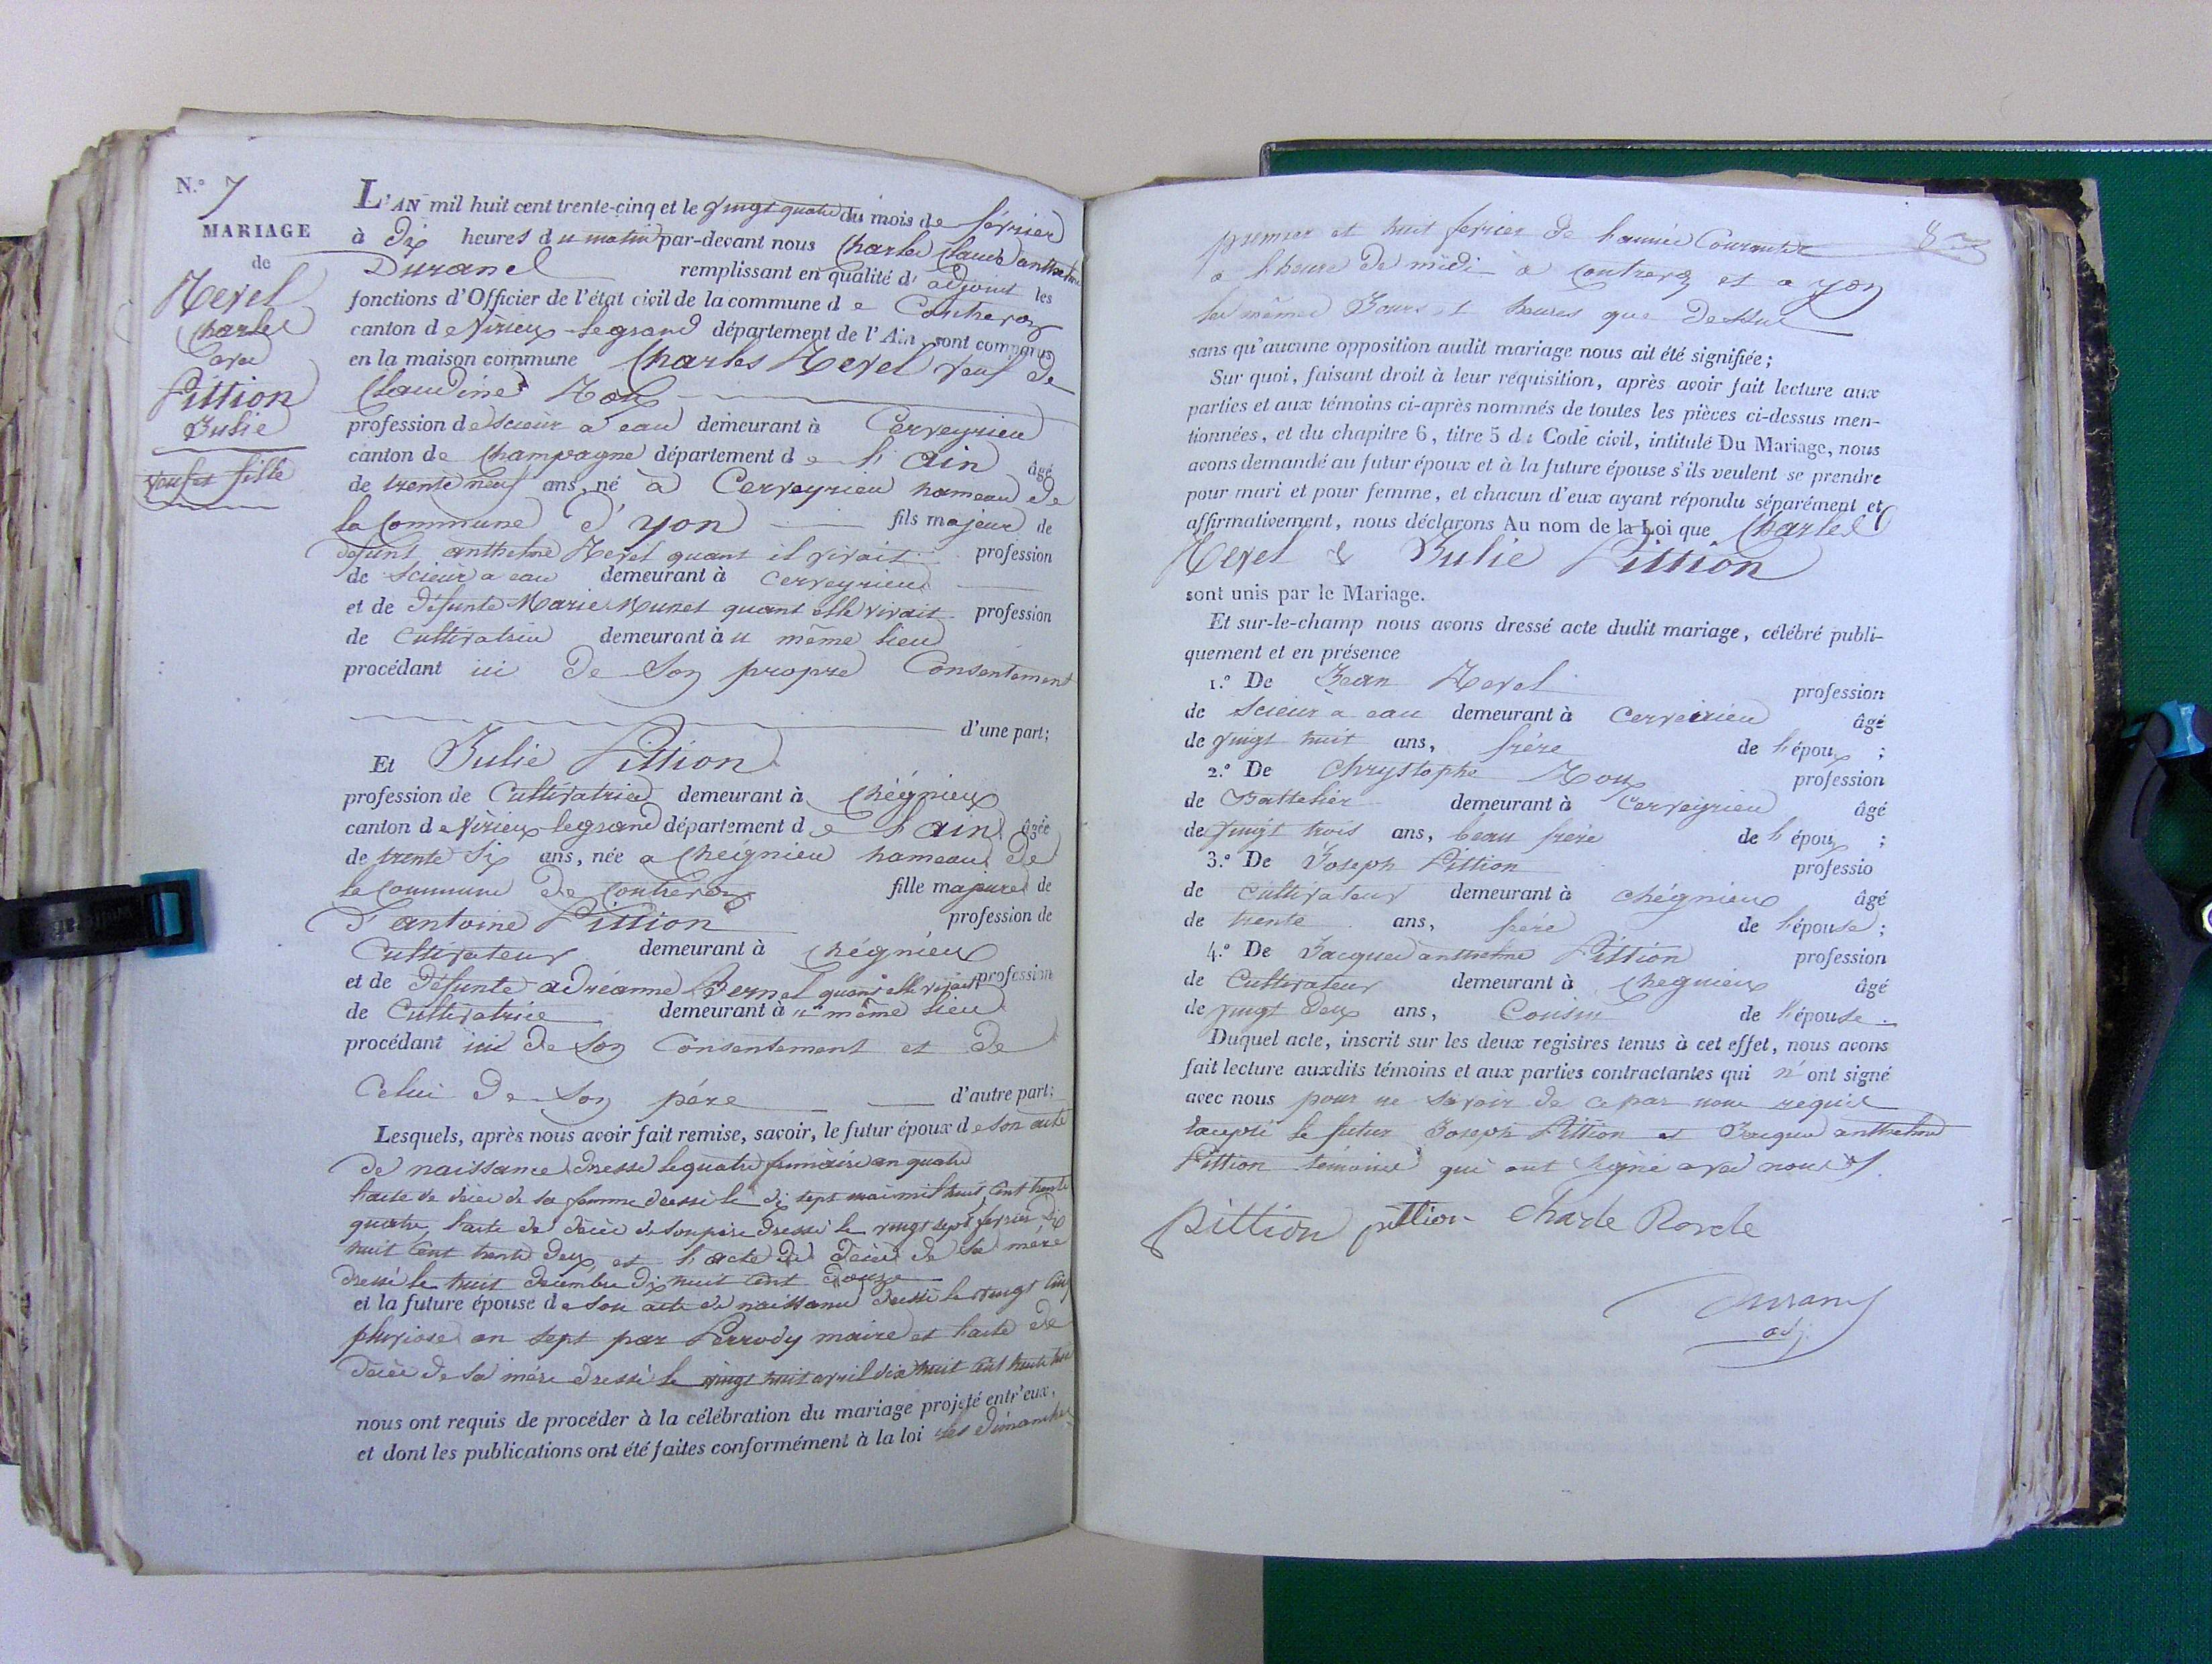 N.° 7
MARIAGE
de
Revel
Charles
avec
Pittion
Julie
veuf et fille
L'AN mil huit cent trente-cinq et le vingt quatre du mois de février
à dix heures du matin par-devant nous Charles Claude anthelme
Durand remplissant en qualité d'adjoint les
fonctions d'Officier de l'état civil de la commune de Contrevoz
canton de Virieux legrand département de l'Ain, sont comparus
en la maison commune Charles Revel veuf de
Claudine Roux
profession de scieur a eau demeurant à Cerveyrieu
canton de Champagne département de l'Ain âgé
de trente neuf ans, né à Cerveyrieu hameau de
la Commune d'yon fils majeur de
défunt anthelme Revel quant il vivait profession
de scieur a eau demeurant à Cerveyrieu
et de défunte Marie Munet quant elle vivait profession
de Cultivatrice demeurant à u même lieu
procédant ici de son propre Consentement
d'une part;
Et Julie Pittion
profession de Cultivatrice demeurant à Chégnieux
canton de Virieux legrand département de l'ain âgée
de trente six ans, née a Cheignieu hameau de
la Commune de Contrevoz fille majeure de
d'antoine Pittion profession de
Cultivateur demeurant à Chégnieux
et de défunte adréanne Bernel quant elle vivait profession
de Cultivatrice demeurant à u même lieu
procédant ici de son Consentement et de
Celui de son pére d'autre part;
Lesquels, après nous avoir fait remise, savoir, le futur époux de son acte
de naissance dressé le quatre frimaire an quatre
l'acte de décès de sa femme dressé le dix sept mai mil huit cent trente
quatre, l'acte de décès de son père dressé le vingt sept fevrier dix
huit cent trente deux, et l'acte de décès de sa mère
dressé le huit décembre dix huit cent douze
et la future épouse de son acte de naissance dressé le vingt cinq
pluviose an sept par Perrody maire et l'acte de
décès de sa mère dressé le vingt huit avril dix huit cent trente
nous ont requis de procéder à la célébration du mariage projeté entr'eux,
et dont les publications ont été faites conformément à la loi les dimanches
premier et huit fevrier de l'année Courante
a l'heure de midi a Contrevoz et a yon
les mêmes Jours et heures que dessus
sans qu'aucune opposition audit mariage nous ait été signifiée;
Sur quoi, faisant droit à leur réquisition, après avoir fait lecture aux
parties et aux témoins ci-après nommés de toutes les pièces ci-dessus men-
tionnées, et du chapitre 6, titre 5 du Code civil, intitulé Du Mariage, nous
avons demandé au futur époux et à la future épouse s'ils veulent se prendre
pour mari et pour femme, et chacun d'eux ayant répondu séparément et
affirmativement, nous déclarons Au nom de la Loi que Charles
Revel & Julie Pittion
sont unis par le Mariage.
Et sur-le-champ nous avons dressé acte dudit mariage, célébré publi-
quement et en présence
1.° De Jean Revel profession
de Scieur a eau demeurant à Cerveirieu âgé
de vingt huit ans, frére de l'époux ;
2.° De Chrystophe Roux profession
de Battelier demeurant à Cerveyrieu âgé
de vingt trois ans, beau frére de l'époux ;
3.° De Joseph Pittion professio
de Cultivateur demeurant à chégnieux âgé
de trente ans, frére de l'épouse ;
4.° De Jacques anthelme Pittion profession
de Cultivateur demeurant à Chegnieux âgé
de vingt deux ans, Cousin de l'épouse.
Duquel acte, inscrit sur les deux registres tenus à cet effet, nous avons
fait lecture auxdits témoins et aux parties contractantes qui n'ont signé
avec nous pour ne savoir de ce par nous requis
excepté le futur Joseph Pittion et Jacques anthelme
Pittion témoins qui ont signé avec nous
pittion pittion Charle Revele
Durand
adj.